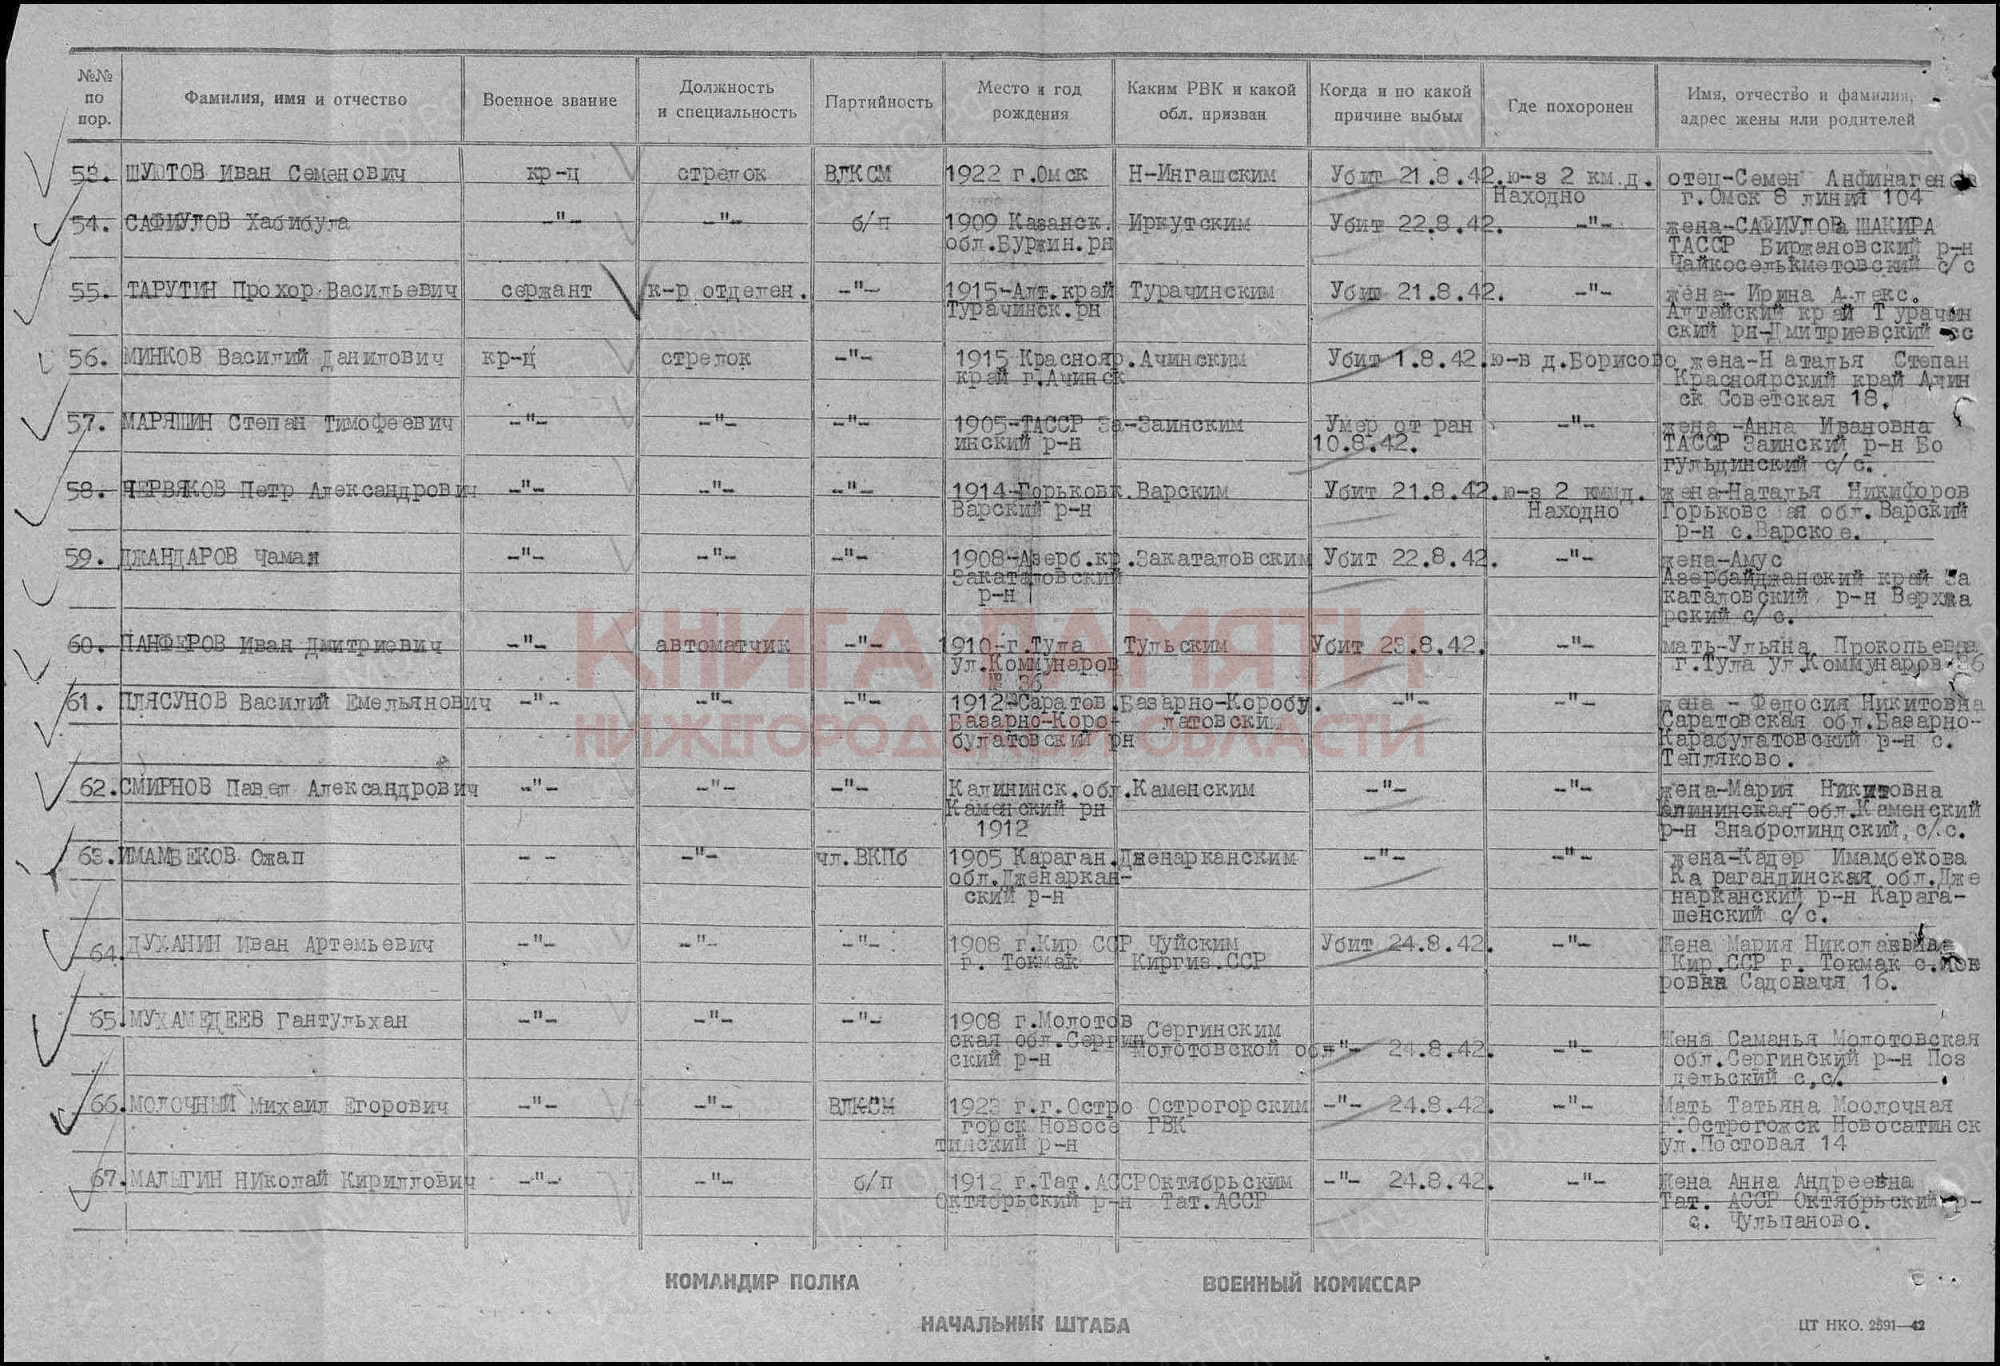 №№ по пор. Фамилия, имя и отчество Военное звание Должность и специальность Партийность Место и год рождения Каким РВК и какой обл. призван Когда и по какой причине выбыл Где похоронен Имя, отчество и фамилия, адрес жены или родителей
53. ШУЮТОВ Иван Семенович кр-ц стрелок ВЛКСМ 1922 г.Омск Н-Ингашским Убит 21.8.42. ю-з 2 км.д. отец-Семен
Находно г.Омск 8 линия 104
54. САФИУЛОВ Хабибула -"- -"- б/п 1909 Казанск. Иркутским Убит 22.8.42. -"- жена-САФИУЛОВа ШАКИРА
обл.Буржин.рн ТАССР Биржановский р-н
Чайкоселькметовский с/с
55. ТАРУТИН Прохор Васильевич сержант к-р отделен. -"- 1915-Алт.край Турачинским Убит 21.8.42. -"- жена- Ирина Алекс.
Турачинск.рн Алтайский край Турачин
ский рн-Дмитриевский сс
56. МИНКОВ Василий Данилович кр-ц стрелок -"- 1915 Краснояр. Ачинским Убит 1.8.42. ю-в д.Борисово жена-Н аталья Степан
край г.Ачинск Красноярский край Ачин
ск Советская 18.
57. МАРЯШИН Степан Тимофеевич -"- -"- -"- 1905-ТАССР За- Заинским Умер от ран -"- жена -Анна Ивановна
инский р-н 10.8.42. ТАССР Заинский р-н Бо
гульдинский с/с.
58. ЧЕРВЯКОВ Петр Александрович -"- -"- -"- 1914-Горьковк. Варским Убит 21.8.42. ю-з 2 кммд. жена-Наталья Никифоров
Варский р-н Находно Горьковс ая обл.Варский
р-н с.Варское.
59. ДЖАНДАРОВ Чамал -"- -"- -"- 1908-Азерб.кр. Закаталовским Убит 22.8.42. -"- жена-Амус
Закаталовский Азербайджанский край За
р-н каталовский р-н Верхжа
рский с/с.
60. ПАНФЕРОВ Иван Дмитриевич -"- автоматчик -"- 1910-г.Тула Тульским Убит 23.8.42. -"- мать-Ульяна Прокопьевна
ул.Коммунаров г.Тула ул.Коммунаров 36
№ 36
61. ПЛЯСУНОВ Василий Емельянович -"- -"- -"- 1912-Саратов. Базарно-Коробу. -"- -"- жена - Федосия Никитовна
Базарно-Коро- латовским Саратовская обл.Базарно-
булатовский рн Карабулатовский р-н с.
Тепляково.
62. СМИРНОВ Павел Александрович -"- -"- -"- Калининск.обл. Каменским -"- -"- жена-Мария Никитовна
Каменский рн алининская обл.Каменский
1912 р-н Знабролиндский с/с.
63. ИМАМБЕКОВ Ожап - - -"- чл.ВКПб 1905 Караган. Дженарканским -"- -"- жена-Кадер Имамбекова
обл.Дженаркан- Ка рагандинская обл.Дже
ский р-н нарканский р-н Карага-
шенский с/с.
64. ДУХАНИН Иван Артемьевич -"- -"- -"- 1908 г.Кир ССР Чуйским Убит 24.8.42. -"- Жена Мария
г. Токмак Киргиз.ССР Кир.ССР г. Токмак
Садовачя 16.
65. МУХАМЕДЕЕВ Гантульхан -"- -"- -"- 1908 г.Молотов Сергинским
ская обл.Сергин Молотовской обл -"- 24.8.42. -"- Жена Саманья Молотовская
ский р-н обл.Сергинский р-н Поз
дельский с,с/.
66. МОЛОЧНЫЙ Михаил Егорович -"- -"- ВЛКСМ 1923 г.г.Остро Острогорским -"- 24.8.42. -"- Мать Татьяна Моолочная
горск Новоса ГВК г.Острогожск Новосатинск
тинский р-н ул.Постовая 14
67. МАЛЫГИН НИколай Кириллович -"- -"- б/п 1912 г.Тат.АССР Октябрьским -"- 24.8.42. -"- Жена Анна Андреевна
Октябрьский р-н Тат.АССР Тат. АССР Октябрьский р-
с. Чульпаново.
КНИГА ПАМЯТИ
НИЖЕГОРОДСКОЙ ОБЛАСТИ
КОМАНДИР ПОЛКА ВОЕННЫЙ КОМИССАР
НАЧАЛЬНИК ШТАБА ЦТ НКО. 2391—42